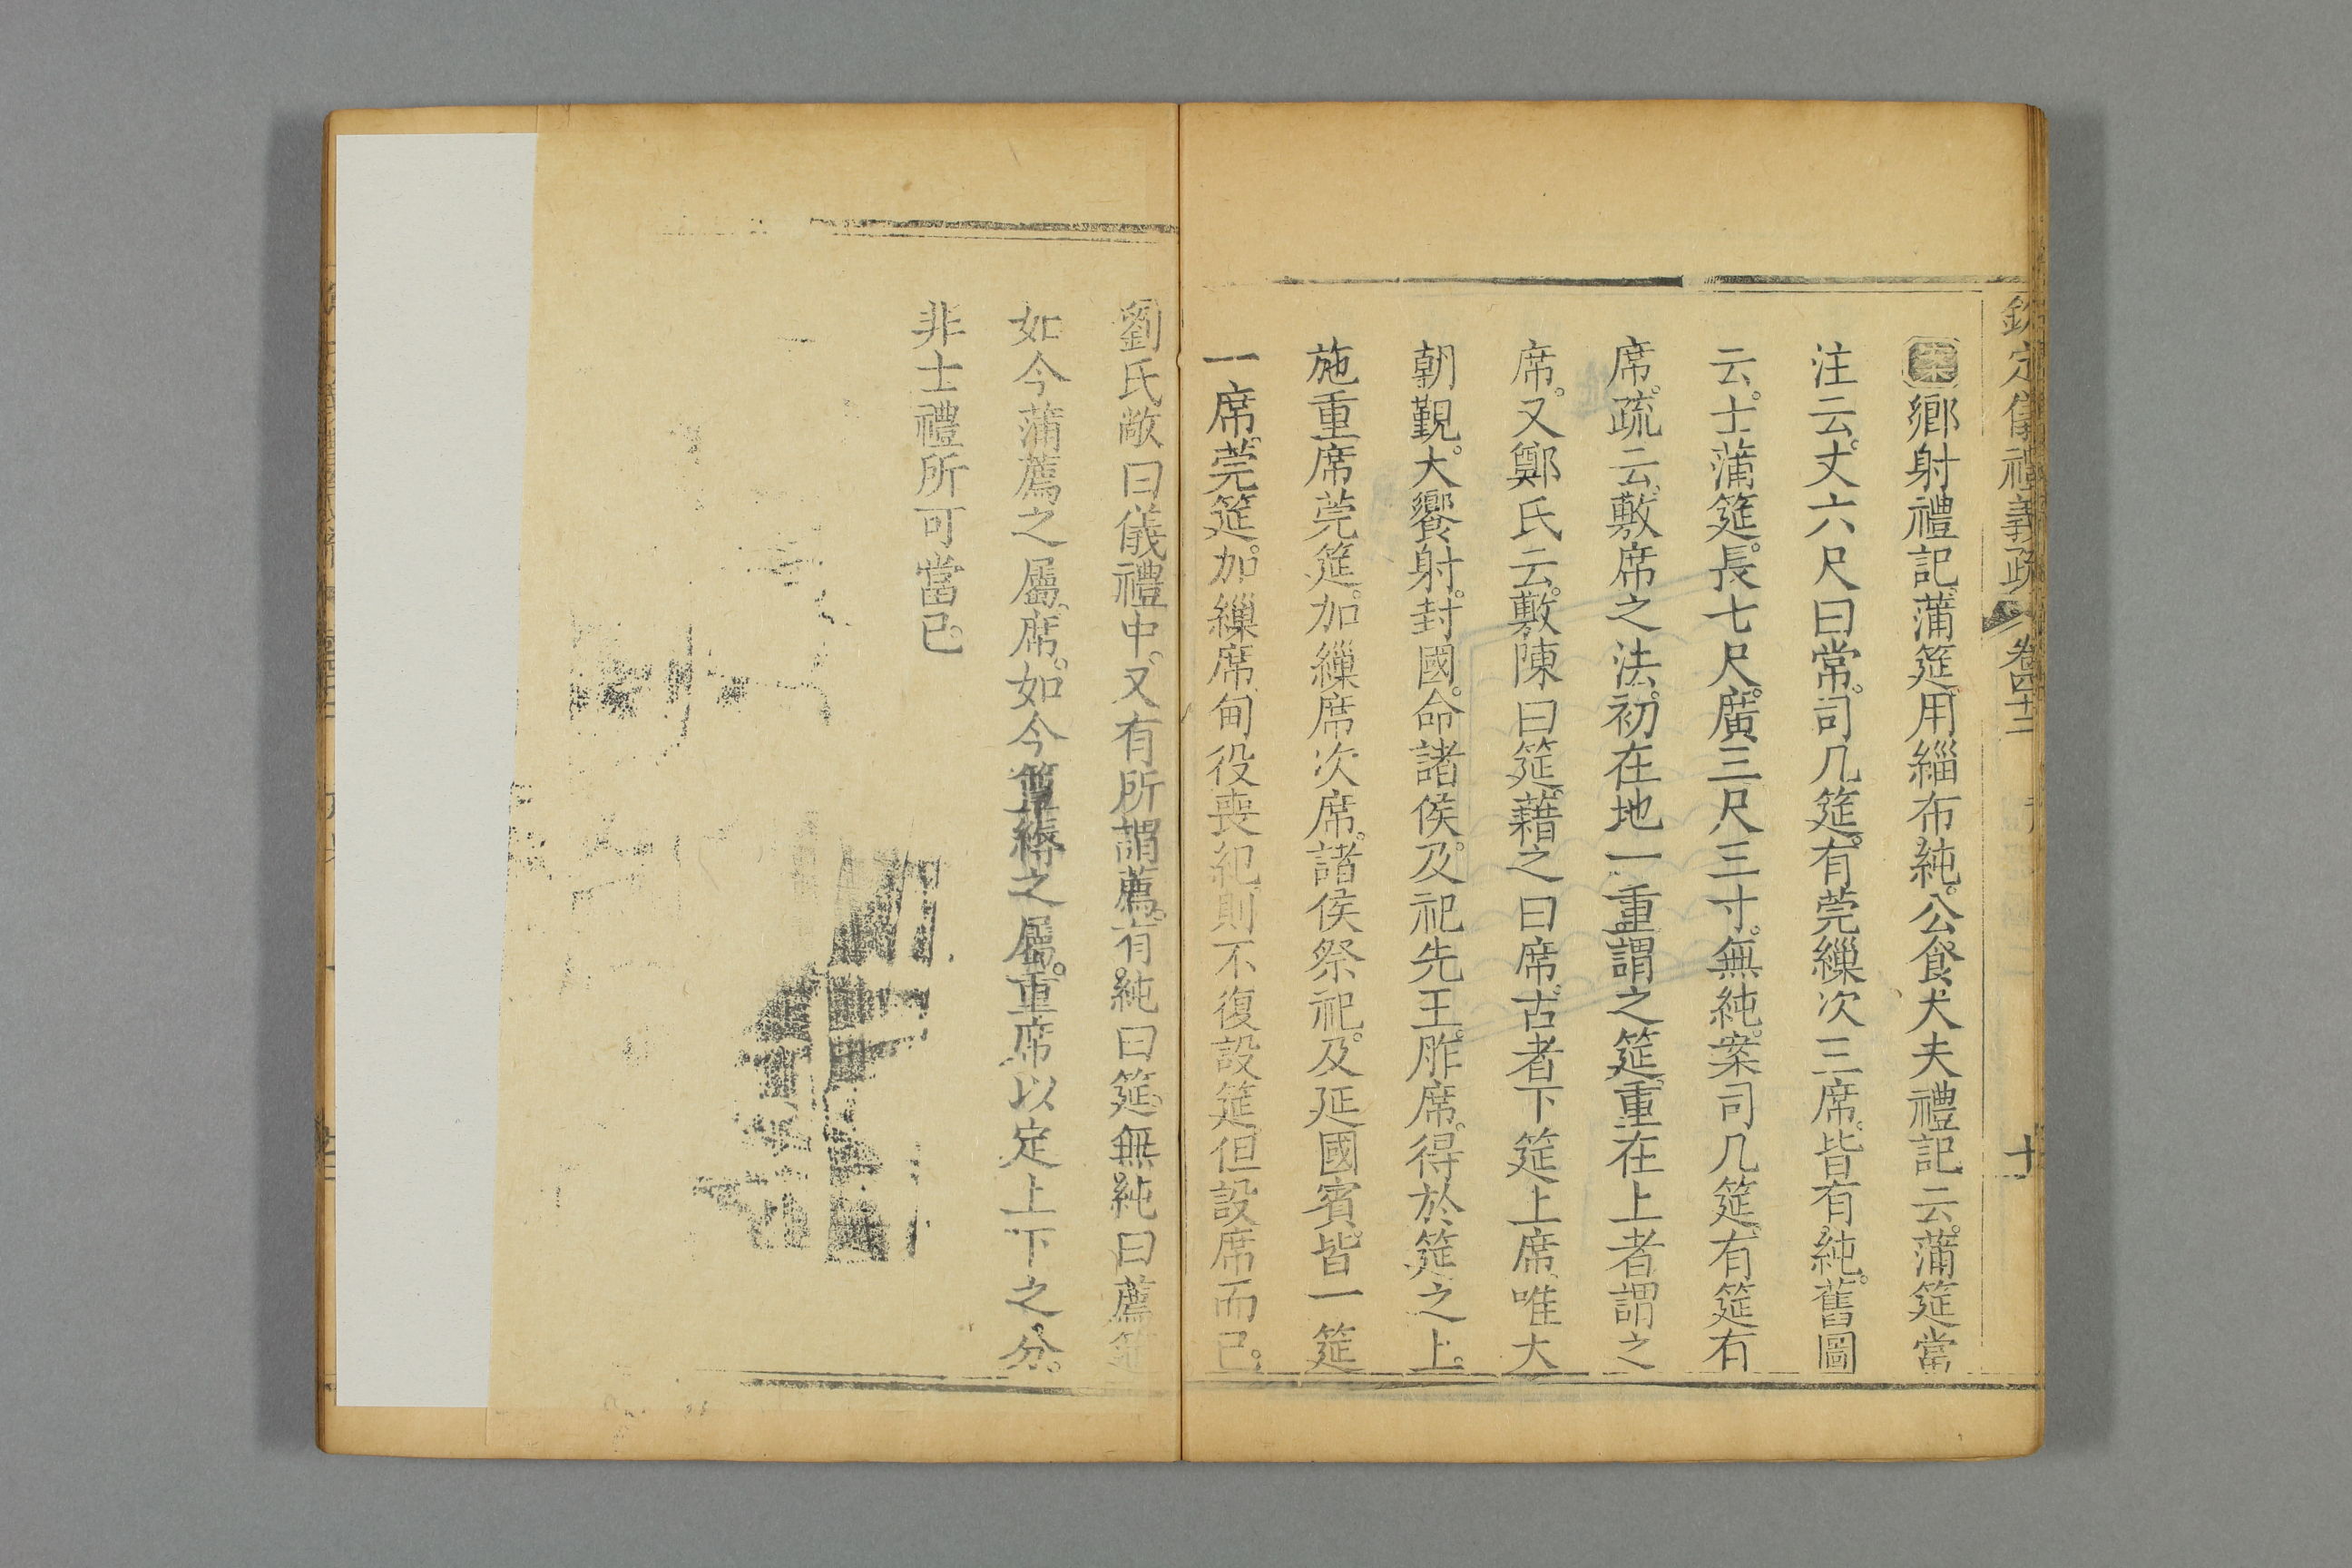 欽定儀禮義疏 卷四十二 十
案鄉射禮記蒲筵用緇布純公食大夫禮記云蒲筵常
注云丈六尺曰常司几筵有莞繅次三席皆有純舊圖
云士蒲筵長七尺廣三尺三寸無純案司几筵有筵有
席疏云敷席之法初在地一重謂之筵重在上者謂之
席又鄭氏云敷陳曰筵藉之曰席古者下筵上席唯大
朝覲大饗射封國命諸侯及祀先王胙席得於筵之上
施重席莞筵加繅席次席諸侯祭祀及延國賓皆一筵
一席莞筵加繅席甸役喪紀則不復設筵但設席而已
劉氏敞曰儀禮中又有所謂薦有純曰筵無純曰薦筵
如今蒲薦之屬席如今簟縟之屬重席以定上下之分
非士禮所可當已